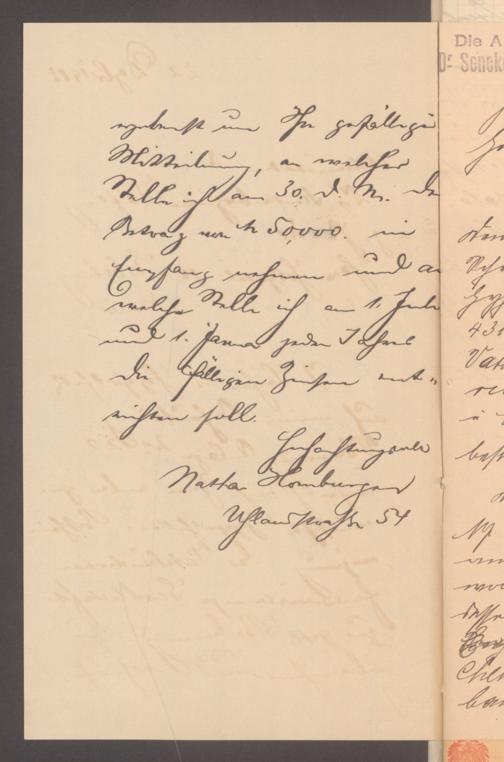 ergebenst um Ihre gefällige
Mitteilung, an welcher
Stelle ich am 30. d. M. den
Betrag von M 50,000. in
Empfang nehmen und an
welche Stelle ich am 1. Juli
und 1. Januar jeden Jahres
die fälligen Zinsen ent-
richten soll.
Hochachtungsvoll
Nathan Homburger
Uhlandstraße 54
Die A
Dr Sencke